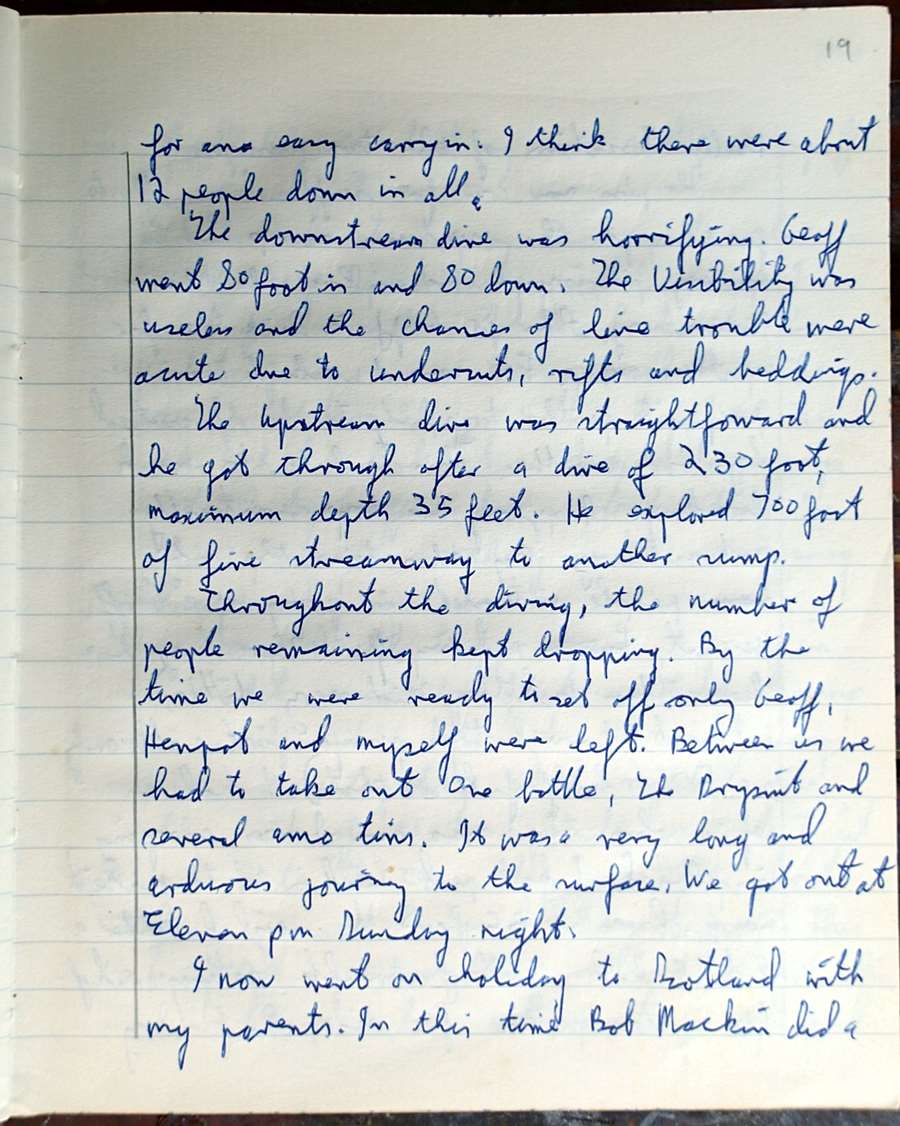 19
for ana easy carry in. I think there were about
12 people down in all.
The downstream dive was horrifying. Geoff
went 80 foot in and 80 down. The Visibility was
useless and the chances of line trouble were
acute due to undercuts, rifts and beddings.
The Upstream dive was straightforward and
he got through after a dive of 230 foot,
maximum depth 35 feet. He explored 700 foot
of fine streamway to another sump.
Throughout the diving, the number of
people remaining kept dropping. By the
time we were ready to set off only Geoff,
Henpot and myself were left. Between us we
had to take out One bottle, the Drysuit and
several amo tins. It was a very long and
arduous journey to the surface. We got out at
Eleven pm Sunday night.
I now went on holiday to Scotland with
my parents. In this time Bob Mackin did a